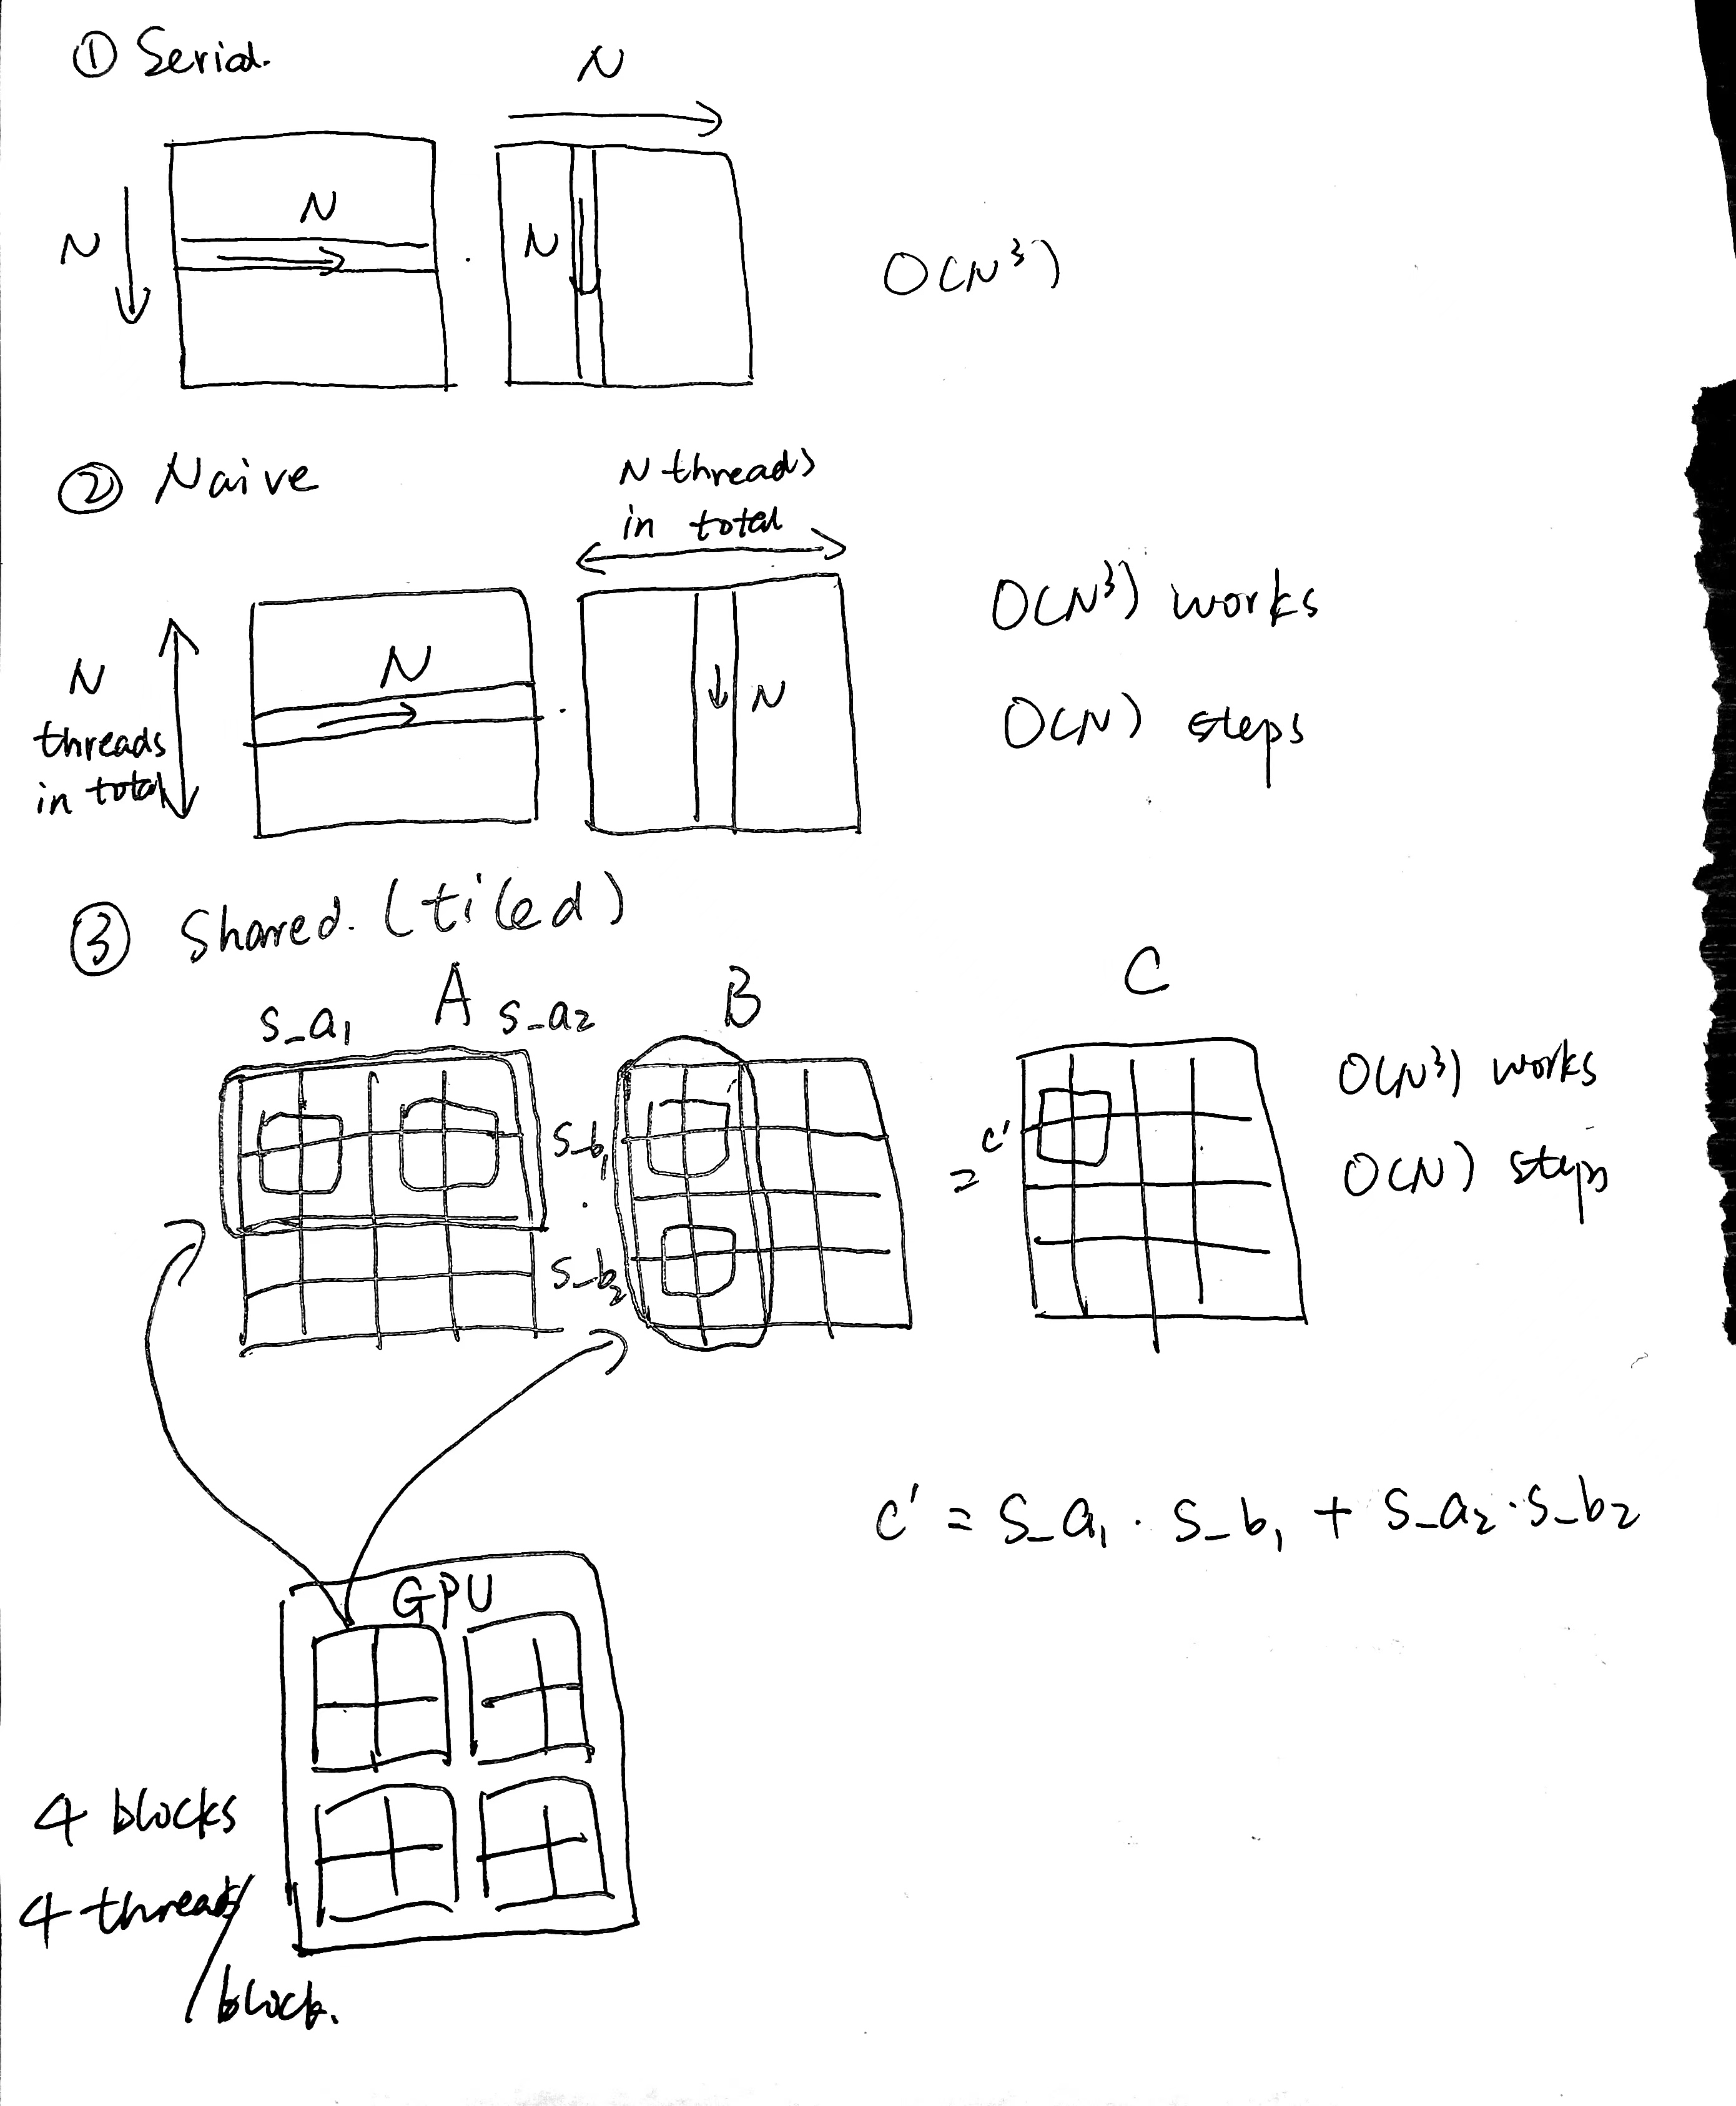 ① Serial.
N
N
N
N
O(N³)
② Naive
N threads
in total
N
threads
in total
N
N
O(N³) works
O(N) steps
③ Shared. (tiled)
A
B
C
s_a₁
s_a₂
s_b₁
s_b₂
.
=
c'
O(N³) works
O(N) steps
c' = s_a₁ · s_b₁ + s_a₂ · s_b₂
GPU
4 blocks
4 threads
/block.